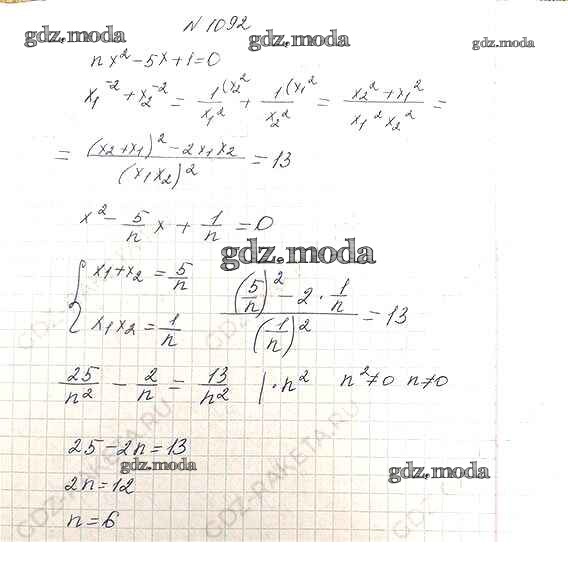 N 1092
gdz.moda gdz.moda gdz.moda
nx² - 5x + 1 = 0
x₁⁻² + x₂⁻² = 1^(x₂² / x₁² + 1^(x₁² / x₂² = (x₂² + x₁²) / (x₁² x₂²) =
= ((x₂ + x₁)² - 2x₁x₂) / (x₁x₂)² = 13
x² - 5/n x + 1/n = 0
gdz.moda
{ x₁ + x₂ = 5/n
x₁x₂ = 1/n
((5/n)² - 2 · 1/n) / (1/n)² = 13
25/n² - 2/n = 13/n² | · n² n² ≠ 0 n ≠ 0
25 - 2n = 13
gdz.moda gdz.moda
2n = 12
n = 6
GDZ-RAKETA.RU
GDZ-RAKETA.RU
GDZ-RAKETA.RU